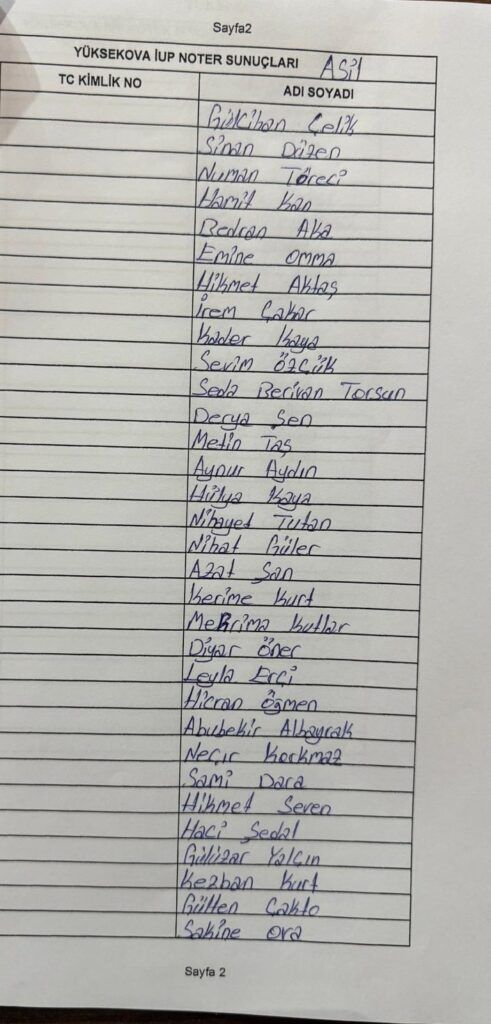 Sayfa2
YÜKSEKOVA İUP NOTER SUNUÇLARI ASil
TC KİMLİK NO ADI SOYADI
Gülcihan Çelik
Sinan Düzen
Numan Töreci
Hamit Kan
Bedran Aka
Emine Omma
Hikmet Aktaş
İrem Çakar
Kader Kaya
Sevim Özçük
Seda Berivan Torsun
Derya Şen
Metin Taş
Aynur Aydın
Hülya Kaya
Nihayet Tutan
Nihat Güler
Azat Şan
Kerime Kurt
Mekrima Kutlar
Diyar Öner
Leyla Erçi
Hicran Öğmen
Abubekir Albayrak
Neçir Korkmaz
Sami Dara
Hikmet Seven
Haci Şedal
Gülüzar Yalçın
Kezban Kurt
Gülten Çakto
Sakine Ora
Sayfa 2